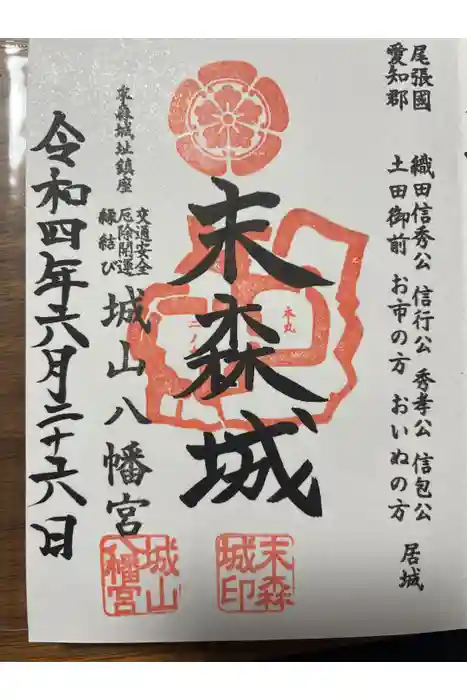 尾張國 織田信秀公 信行公 秀孝公 信包公
愛知郡 土田御前 お市の方 おいぬの方 居城
本丸
二ノ丸
末森城
末森城印
末森城址鎮座
交通安全
厄除開運
縁結び
城山八幡宮
城山八幡宮
令和四年六月二十六日